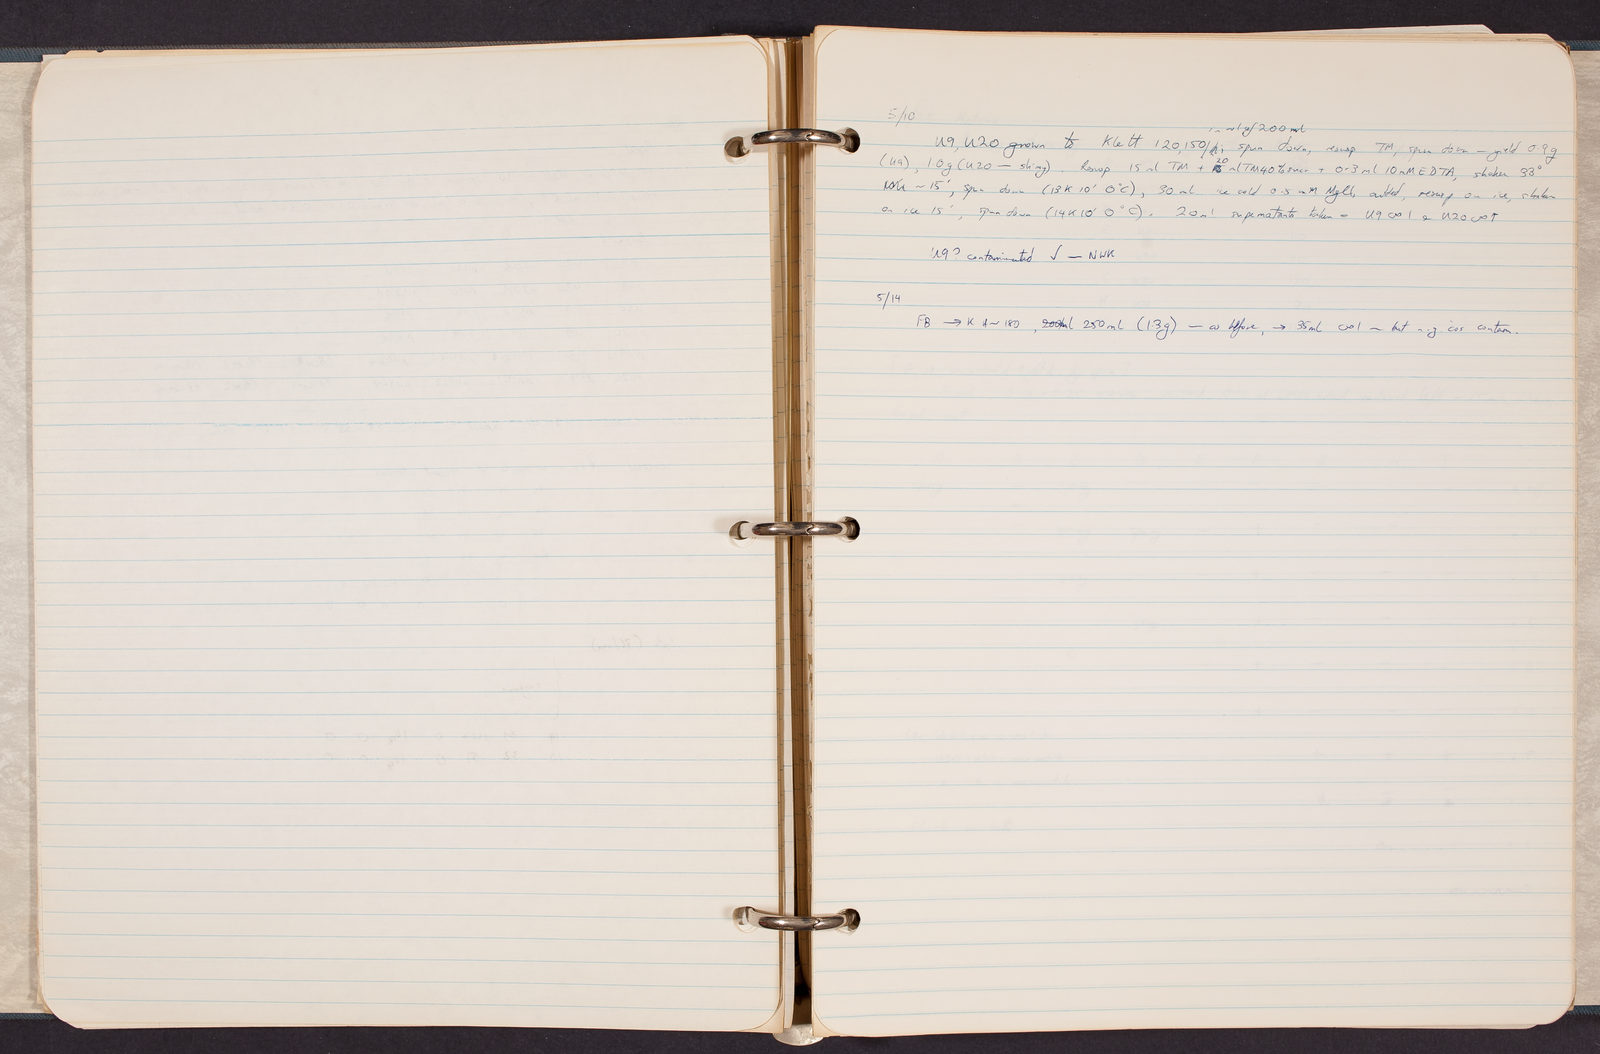 5/10
of 200 ml
U9, U20 grown to Klett 120,150, spun down, resusp TM, spun down — yield 0.9g
(U9), 1.0g (U20 — stringy). Resusp 15 ml TM + 20 ml TM 40% sucr + 0.3 ml 10mM EDTA, shaken 33°
~ 15', spun down (13K 10' 0°C), 30 ml ice cold 0.5 mM MgCl2 added, resusp on ice, shaken
on ice 15', spun down (14K 10' 0°C). 20ml supernatants taken = U9 & U20
U9? contaminated √ — NWK
5/14
FB → K ~ 180, 250 ml (1.3g) — as before, → 35ml — but contam.